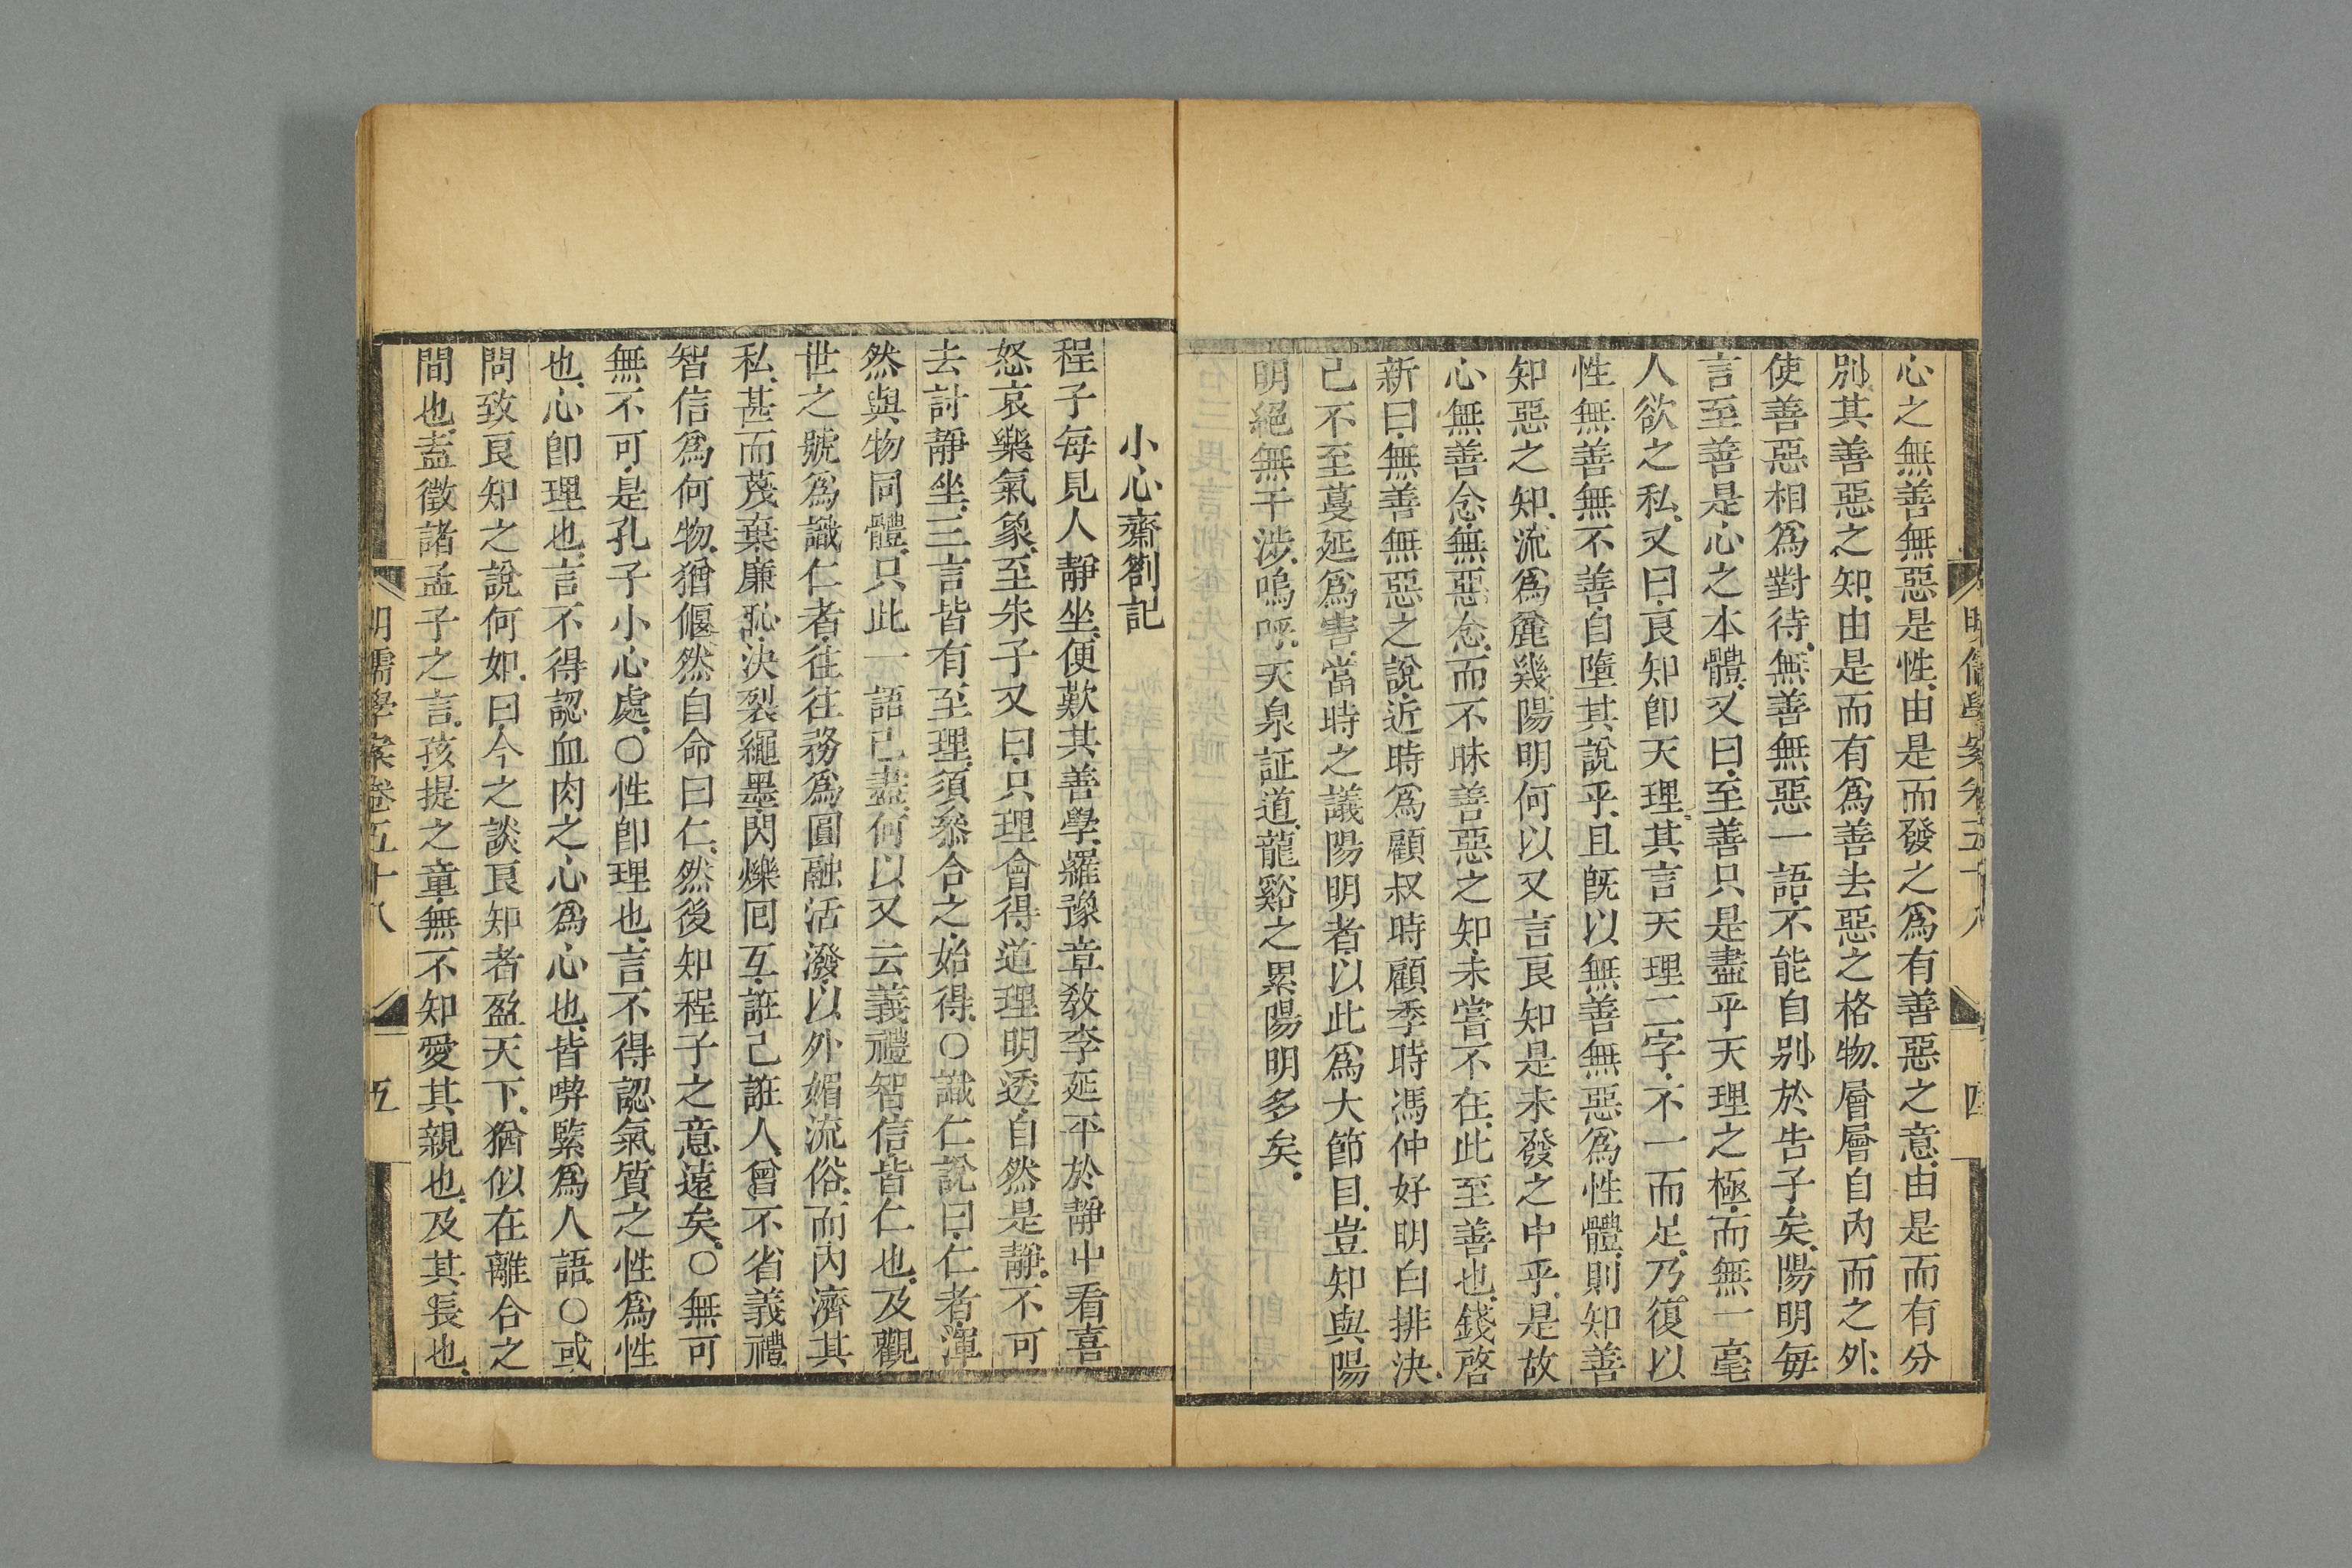 心之無善無惡是性、由是而發之爲有善惡之意、由是而有分
別其善惡之知、由是而有爲善去惡之格物、層層自內而之外、
使善惡相爲對待、無善無惡一語、不能自別於告子矣、陽明每
言至善是心之本體、又曰、至善只是盡乎天理之極、而無一毫
人欲之私、又曰、良知卽天理、其言天理二字、不一而足、乃復以
性無善無不善、自墮其說乎、且旣以無善無惡爲性體、則知善
知惡之知、流爲麄幾、陽明何以又言良知是未發之中乎、是故
心無善念、無惡念、而不昧善惡之知、未嘗不在、此至善也、錢啓
新曰、無善無惡之說、近時爲顧叔時顧季時馮仲好明白排決、
已不至蔓延爲害、當時之議陽明者、以此爲大節目、豈知與陽
明絕無干涉、嗚呼、天泉証道、龍谿之累陽明多矣、
明儒學案卷五十八
四
小心齋劄記
程子每見人靜坐、便歎其善學、羅豫章敎李延平於靜中看喜
怒哀樂氣象、至朱子又曰、只理會得道理明透、自然是靜、不可
去討靜坐、三言皆有至理、須叅合之、始得、○識仁說曰、仁者渾
然與物同體、只此一語已盡、何以又云義禮智信皆仁也、及觀
世之號爲識仁者、往往務爲圓融活潑、以外媚流俗、而內濟其
私、甚而蔑棄廉恥、決裂繩墨、閃爍回互、誑己誑人、曾不省義禮
智信爲何物、猶偃然自命曰仁、然後知程子之意遠矣、○無可
無不可、是孔子小心處、○性卽理也、言不得認氣質之性爲性
也、心卽理也、言不得認血肉之心爲心也、皆喫緊爲人語、○或
問致良知之說何如、曰、今之談良知者盈天下、猶似在離合之
間也、蓋徵諸孟子之言、孩提之童、無不知愛其親也、及其長也、
明儒學案卷五十八
五